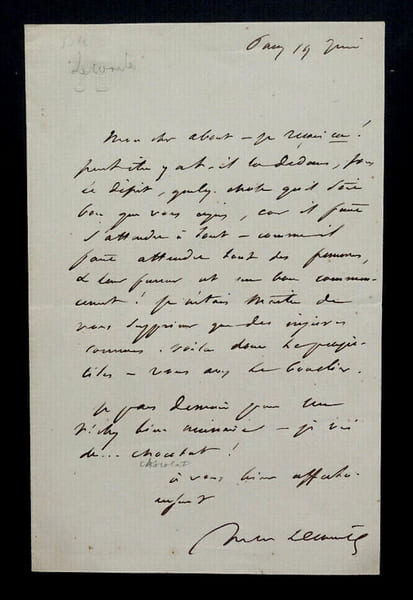 Lecomte
Paris 19 Juin
Mon cher about – je reçois ça !
peut être y a-t-il là dedans, sous
ce dépit, quelq. chose qu'il soit
bon que vous ayez, car il faut
s'attendre à tout – comme il
faut attendre tout des femmes,
& leur fureur est un bon commen-
cement ! je n'étais maître de
vous supprimer que des injures
connues. voilà donc les projec-
tiles – vous avez le bouclier.
je pars demain pour
Vichy bien
de... chocolat !
chocolat
à vous bien affectu-
eusement
Jules Lecomte